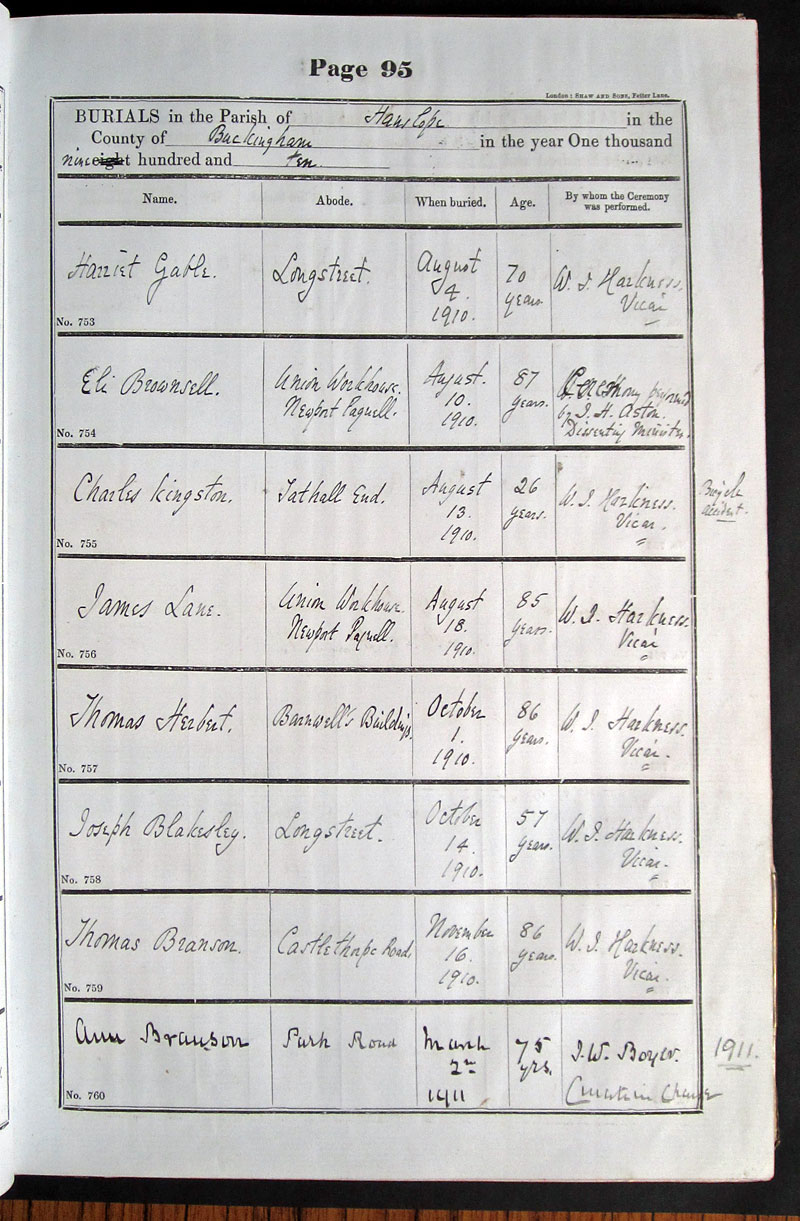 Page 95
London: SHAW AND SONS, Fetter Lane.
BURIALS in the Parish of Hanslope in the
County of Buckingham in the year One thousand
nine eight hundred and ten
Name. Abode. When buried. Age. By whom the Ceremony
was performed.
Harriet Gable. Longstreet. August
4.
1910. 70
years. W. J. Harkness.
Vicar
No. 753
Eli Brownsell. Union Workhouse.
Newport Pagnell. August.
10.
1910. 87
years. performed
by J. H. Aston.
Dissenting Minister.
No. 754
Charles Kingston. Tathall End. August
13.
1910. 26
years. W. J. Harkness.
Vicar.
Bicycle
accident.
No. 755
James Lane. Union Workhouse.
Newport Pagnell. August
18.
1910. 85
years. W. J. Harkness.
Vicar
No. 756
Thomas Herbert. Barnwell's Buildings. October
1.
1910. 86
years. W. J. Harkness.
Vicar.
No. 757
Joseph Blakesley. Longstreet. October
14.
1910. 57
years. W. J. Harkness.
Vicar.
No. 758
Thomas Branson. Castlethorpe Road. November
16.
1910. 86
years. W. J. Harkness.
Vicar.
No. 759
Ann Branson Park Road March
2nd
1911 75
yrs. J. W. Boyer.
Curate in Charge
1911.
No. 760